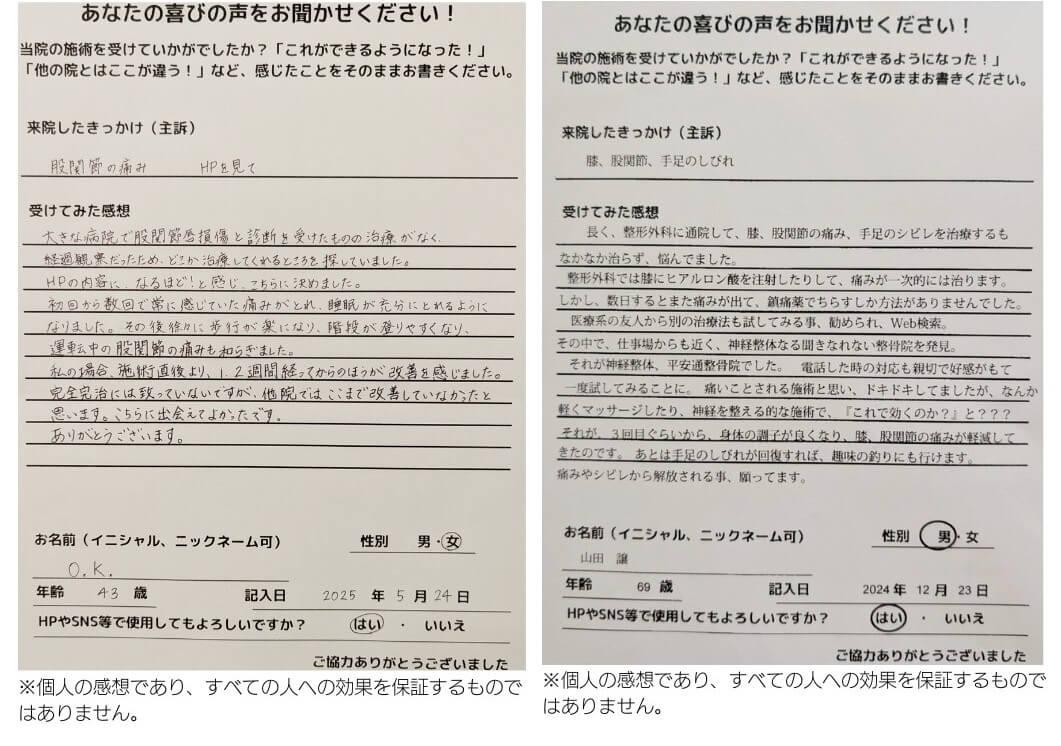 あなたの喜びの声をお聞かせください！
当院の施術を受けていかがでしたか？「これができるようになった！」
「他の院とはここが違う！」など、感じたことをそのままお書きください。
来院したきっかけ（主訴）
股関節の痛み HPを見て
受けてみた感想
大きな病院で股関節唇損傷と診断を受けたものの治療がなく、
経過観察だったため、どこか治療してくれるところを探していました。
HPの内容に、なるほど!と感じ、こちらに決めました。
初回から数回で常に感じていた痛みがとれ、睡眠が充分にとれるように
なりました。その後徐々に歩行が楽になり、階段が登りやすくなり、
運転中の股関節の痛みも和らぎました。
私の場合、施術直後より、1、2週間経ってからのほうが改善を感じました。
完全完治には致っていないですが、他院ではここまで改善していなかったと
思います。こちらに出会えてよかったです。
ありがとうございます。
お名前（イニシャル、ニックネーム可） 性別 男・女
O.K.
年齢 43 歳 記入日 2025 年 5 月 24 日
HPやSNS等で使用してもよろしいですか？ はい ・ いいえ
ご協力ありがとうございました
※個人の感想であり、すべての人への効果を保証するもので
はありません。
あなたの喜びの声をお聞かせください！
当院の施術を受けていかがでしたか？「これができるようになった！」
「他の院とはここが違う！」など、感じたことをそのままお書きください。
来院したきっかけ（主訴）
膝、股関節、手足のしびれ
受けてみた感想
長く、整形外科に通院して、膝、股関節の痛み、手足のシビレを治療するも
なかなか治らず、悩んでました。
整形外科では膝にヒアルロン酸を注射したりして、痛みが一次的には治ります。
しかし、数日するとまた痛みが出て、鎮痛薬でちらすしか方法がありませんでした。
医療系の友人から別の治療法も試してみる事、勧められ、Web検索。
その中で、仕事場からも近く、神経整体なる聞きなれない整骨院を発見。
それが神経整体、平安通整骨院でした。 電話した時の対応も親切で好感がもて
一度試してみることに。 痛いことされる施術と思い、ドキドキしてましたが、なんか
軽くマッサージしたり、神経を整える的な施術で、『これで効くのか？』と？？？
それが、３回目ぐらいから、身体の調子が良くなり、膝、股関節の痛みが軽減して
きたのです。 あとは手足のしびれが回復すれば、趣味の釣りにも行けます。
痛みやシビレから解放される事、願ってます。
お名前（イニシャル、ニックネーム可） 性別 男・女
山田 譲
年齢 69 歳 記入日 2024 年 12 月 23 日
HPやSNS等で使用してもよろしいですか？ はい ・ いいえ
ご協力ありがとうございました
※個人の感想であり、すべての人への効果を保証するもので
はありません。